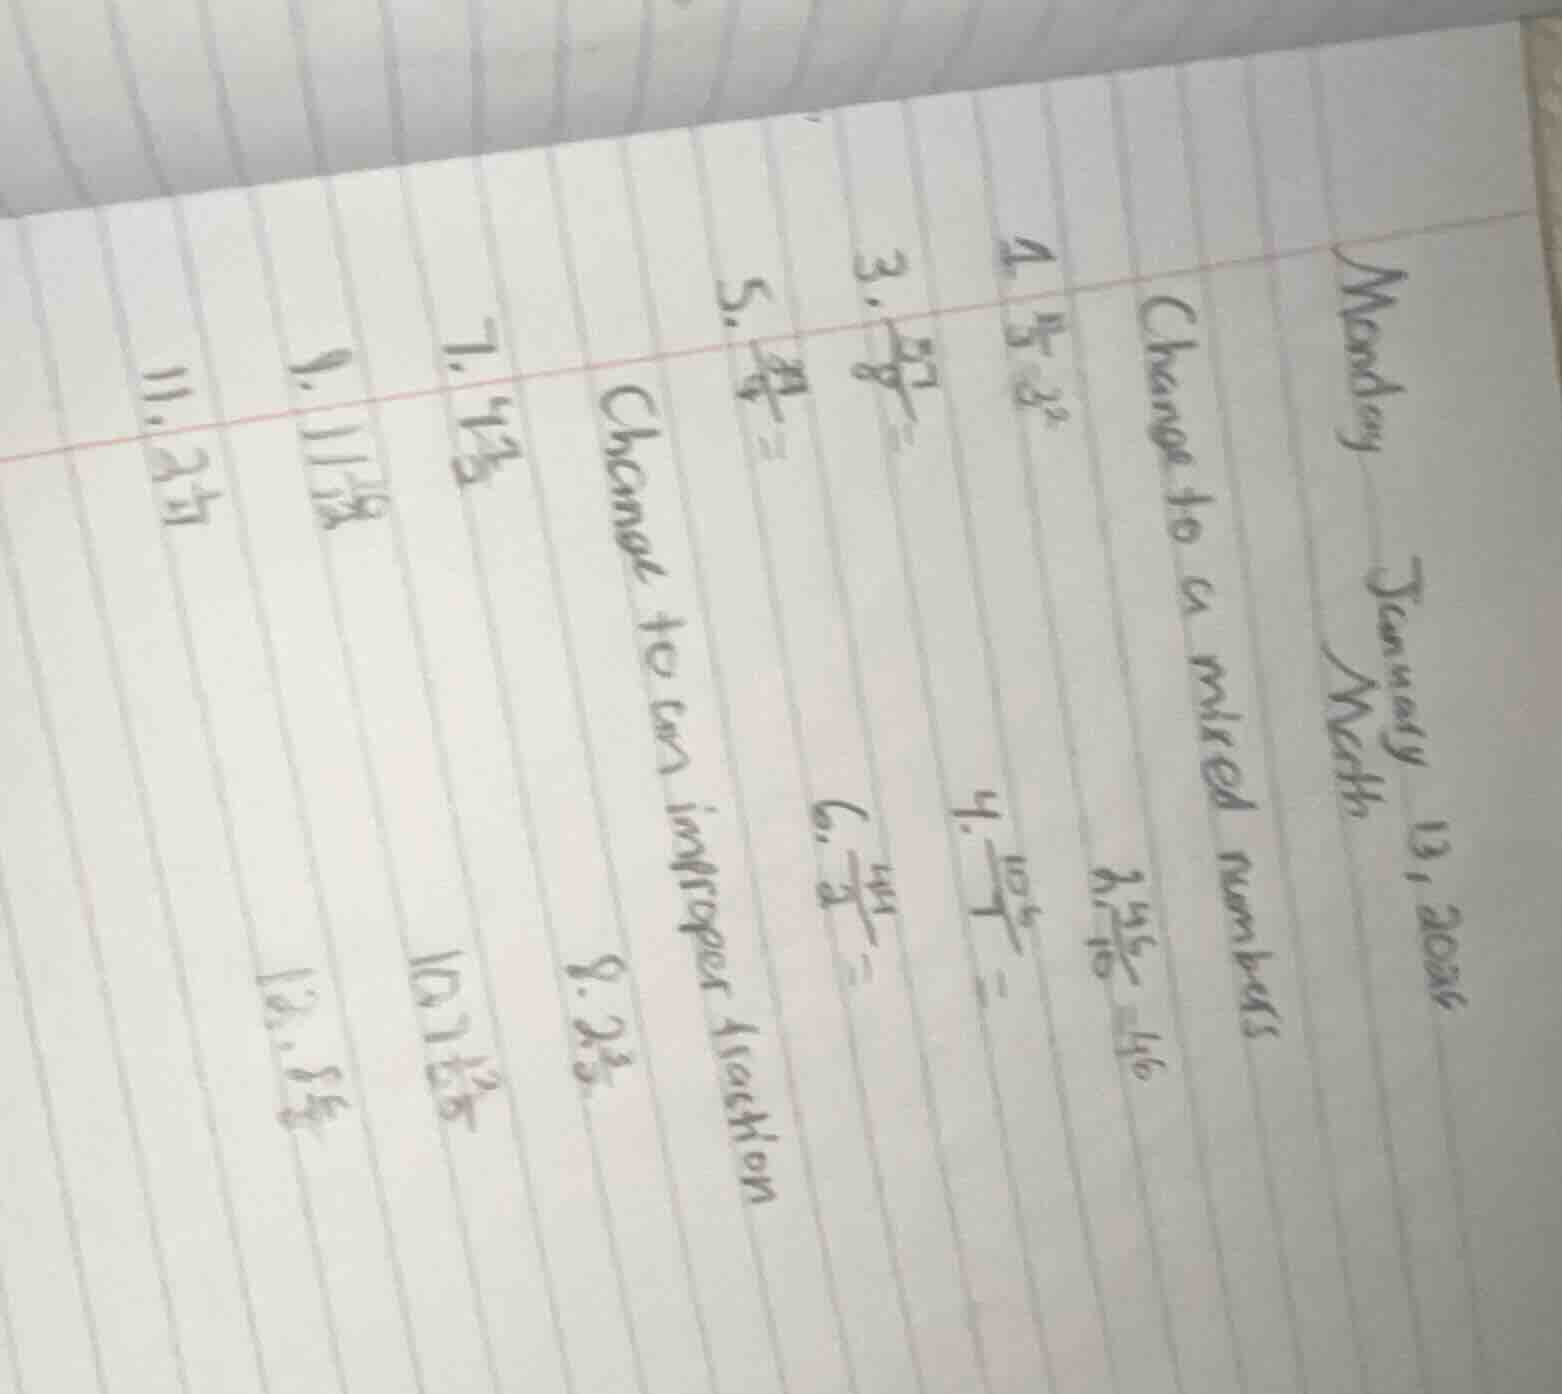 Monday January 13, 2026
Math
Change to a mixed numbers
1. 2. 46/10 = 46
3. 57/8 = 4. 106/7 =
5. = 6. 44/2 =
Change to an improper fraction
7. 4 2/3 8. 2 3/5
9. 11 10/12 10. 7
11. 2 1/4 12. 8